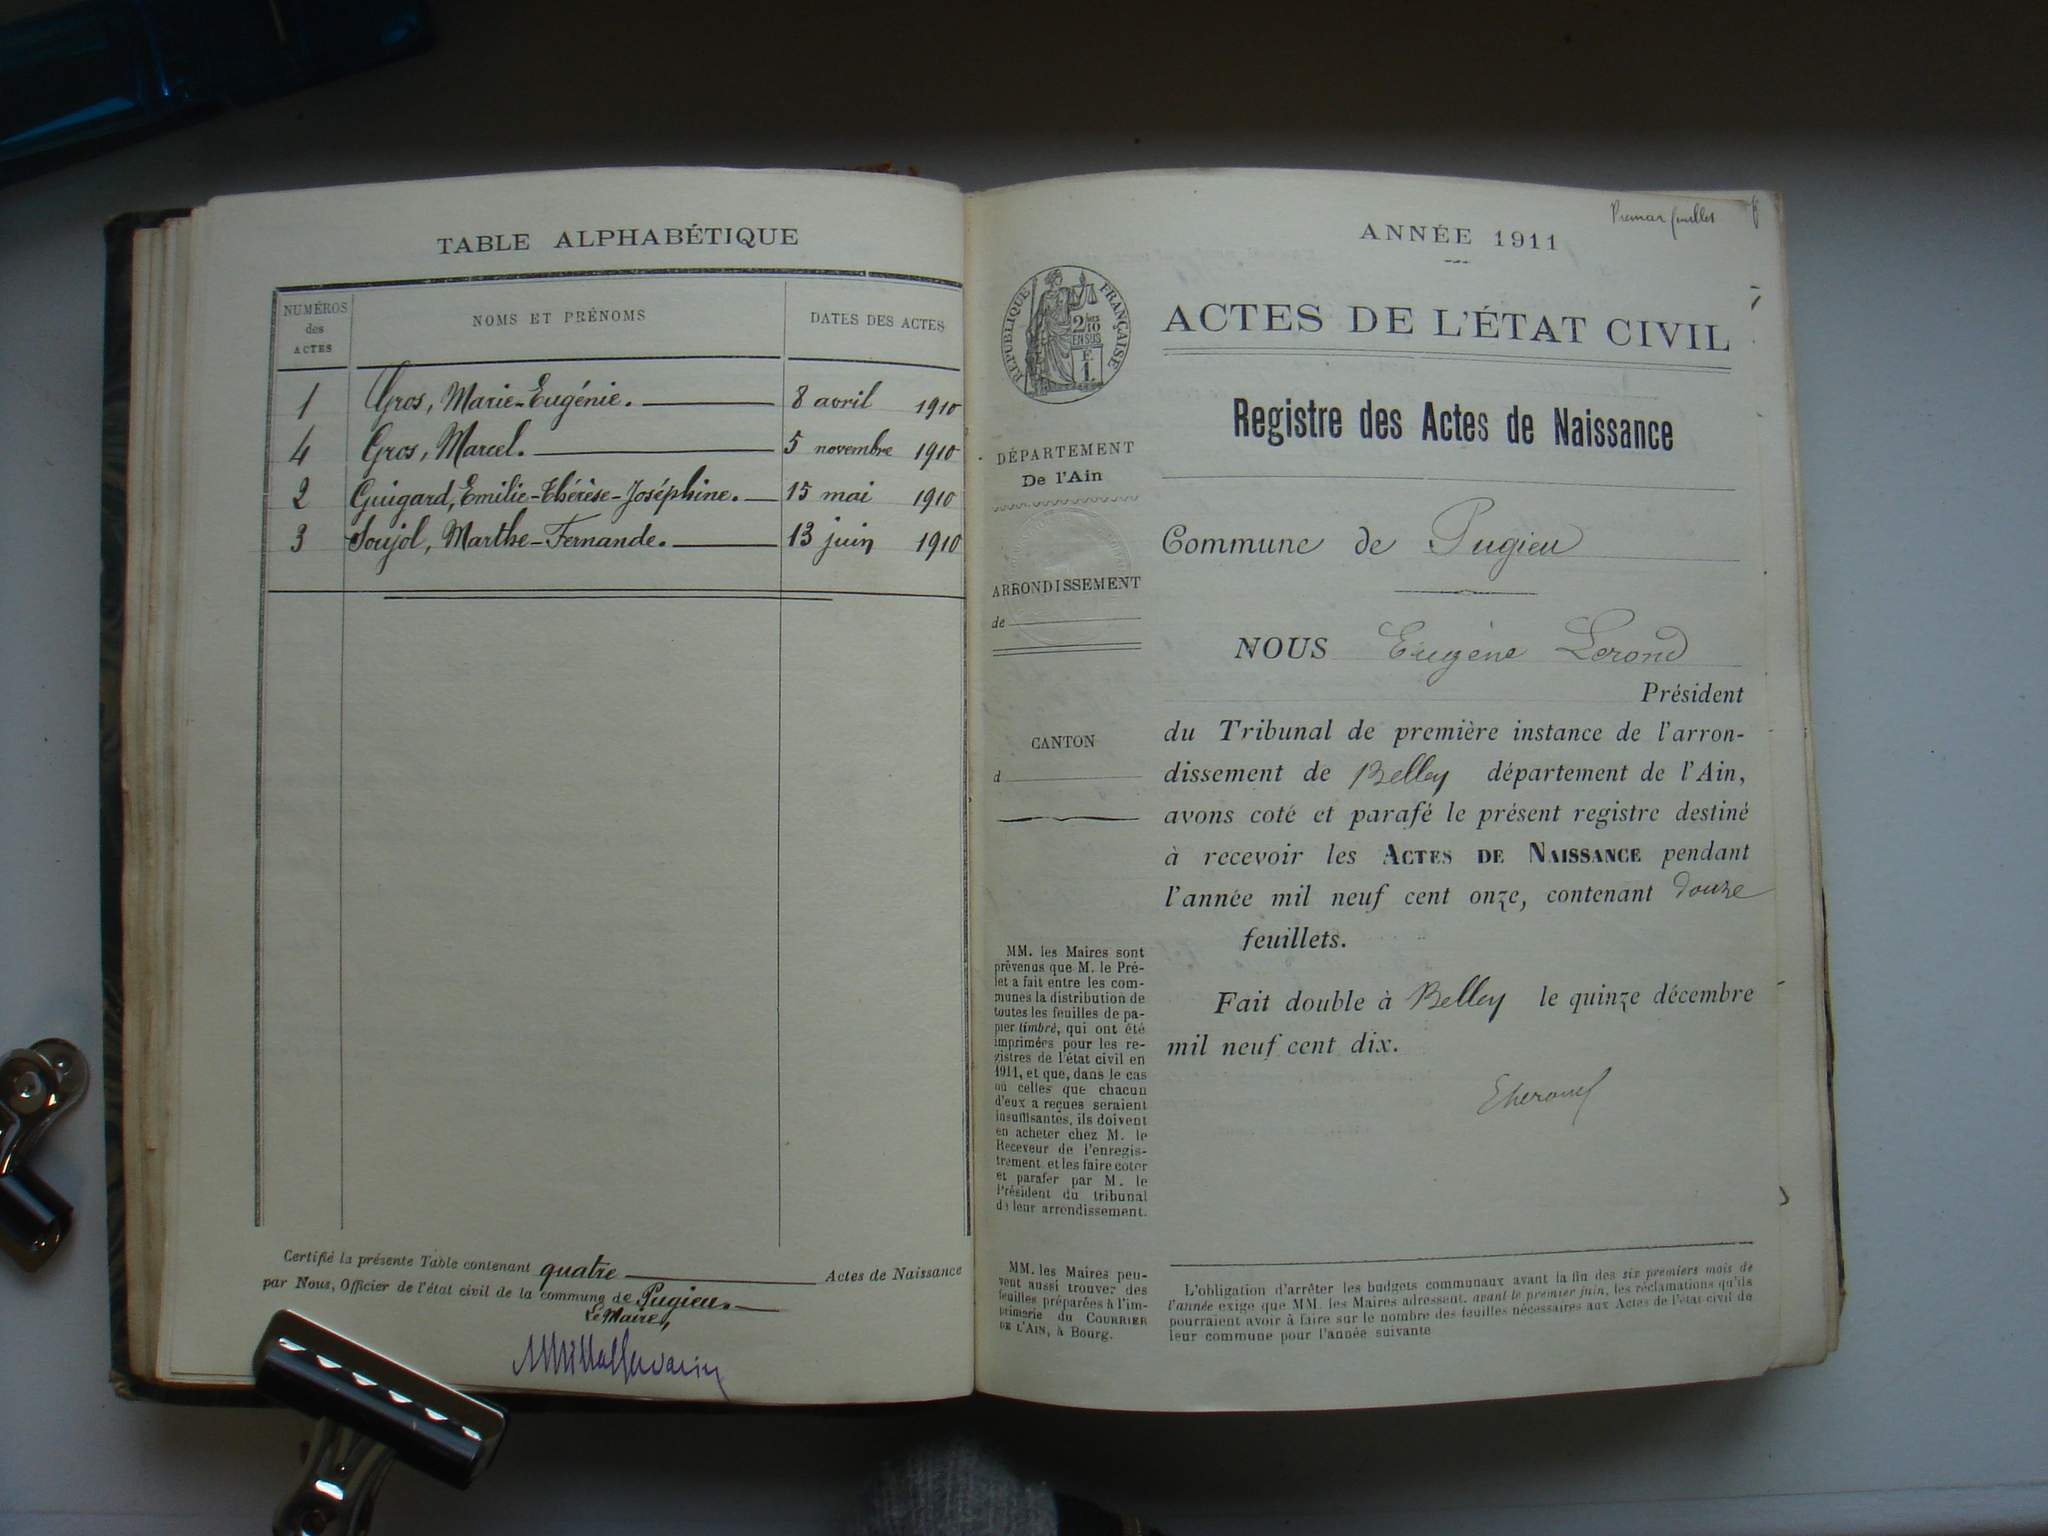 TABLE ALPHABÉTIQUE
NUMÉROS des ACTES NOMS ET PRÉNOMS DATES DES ACTES
1 Gros, Marie-Eugénie. 8 avril 1910
4 Gros, Marcel. 5 novembre 1910
2 Guigard, Emilie-Thérèse-Joséphine. 15 mai 1910
3 Soujol, Marthe-Fernande. 13 juin 1910
Certifié la présente Table contenant quatre Actes de Naissance
par Nous, Officier de l'état civil de la commune de Pugieu.
Le Maire,
Premier feuillet
ANNÉE 1911
RÉPUBLIQUE FRANÇAISE
2/10
EN SUS
F.
1.
ACTES DE L'ÉTAT CIVIL
Registre des Actes de Naissance
DÉPARTEMENT
De l'Ain
ARRONDISSEMENT
de
CANTON
d
MM. les Maires sont
prévenus que M. le Pré-
fet a fait entre les com-
munes la distribution de
toutes les feuilles de pa-
pier timbré, qui ont été
imprimées pour les re-
gistres de l'état civil en
1911, et que, dans le cas
où celles que chacun
d'eux a reçues seraient
insuffisantes, ils doivent
en acheter chez M. le
Receveur de l'enregis-
trement et les faire coter
et parafer par M. le
Président du tribunal
de leur arrondissement.
MM. les Maires peu-
vent aussi trouver des
feuilles préparées à l'im-
primerie du COURRIER
DE L'AIN, à Bourg.
Commune de Pugieu
NOUS Eugène Lerond
Président
du Tribunal de première instance de l'arron-
dissement de Belley département de l'Ain,
avons coté et parafé le présent registre destiné
à recevoir les ACTES DE NAISSANCE pendant
l'année mil neuf cent onze, contenant douze
feuillets.
Fait double à Belley le quinze décembre
mil neuf cent dix.
L'obligation d'arrêter les budgets communaux avant la fin des six premiers mois de
l'année exige que MM. les Maires adressent, avant le premier juin, les réclamations qu'ils
pourraient avoir à faire sur le nombre des feuilles nécessaires aux Actes de l'état civil de
leur commune pour l'année suivante